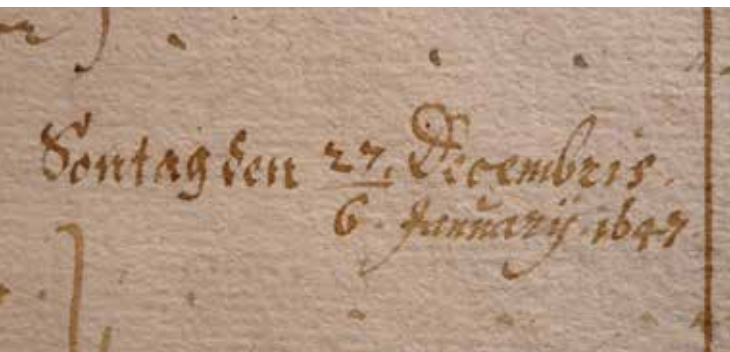 Sontag den 27. Decembris.
6. Januarij 1647.